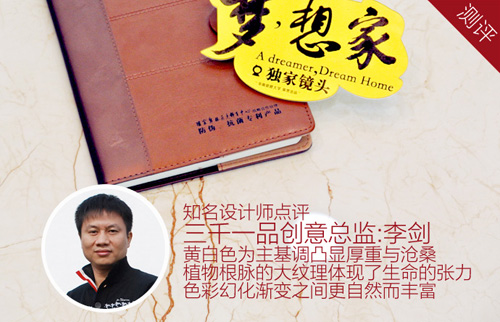 测评
梦,想家
A dreamer,Dream Home
独家镜头
防伪·抗菌专利产品
知名设计师点评
三千一品创意总监:李剑
黄白色为主基调凸显厚重与沧桑
植物根脉的大纹理体现了生命的张力
色彩幻化渐变之间更自然而丰富